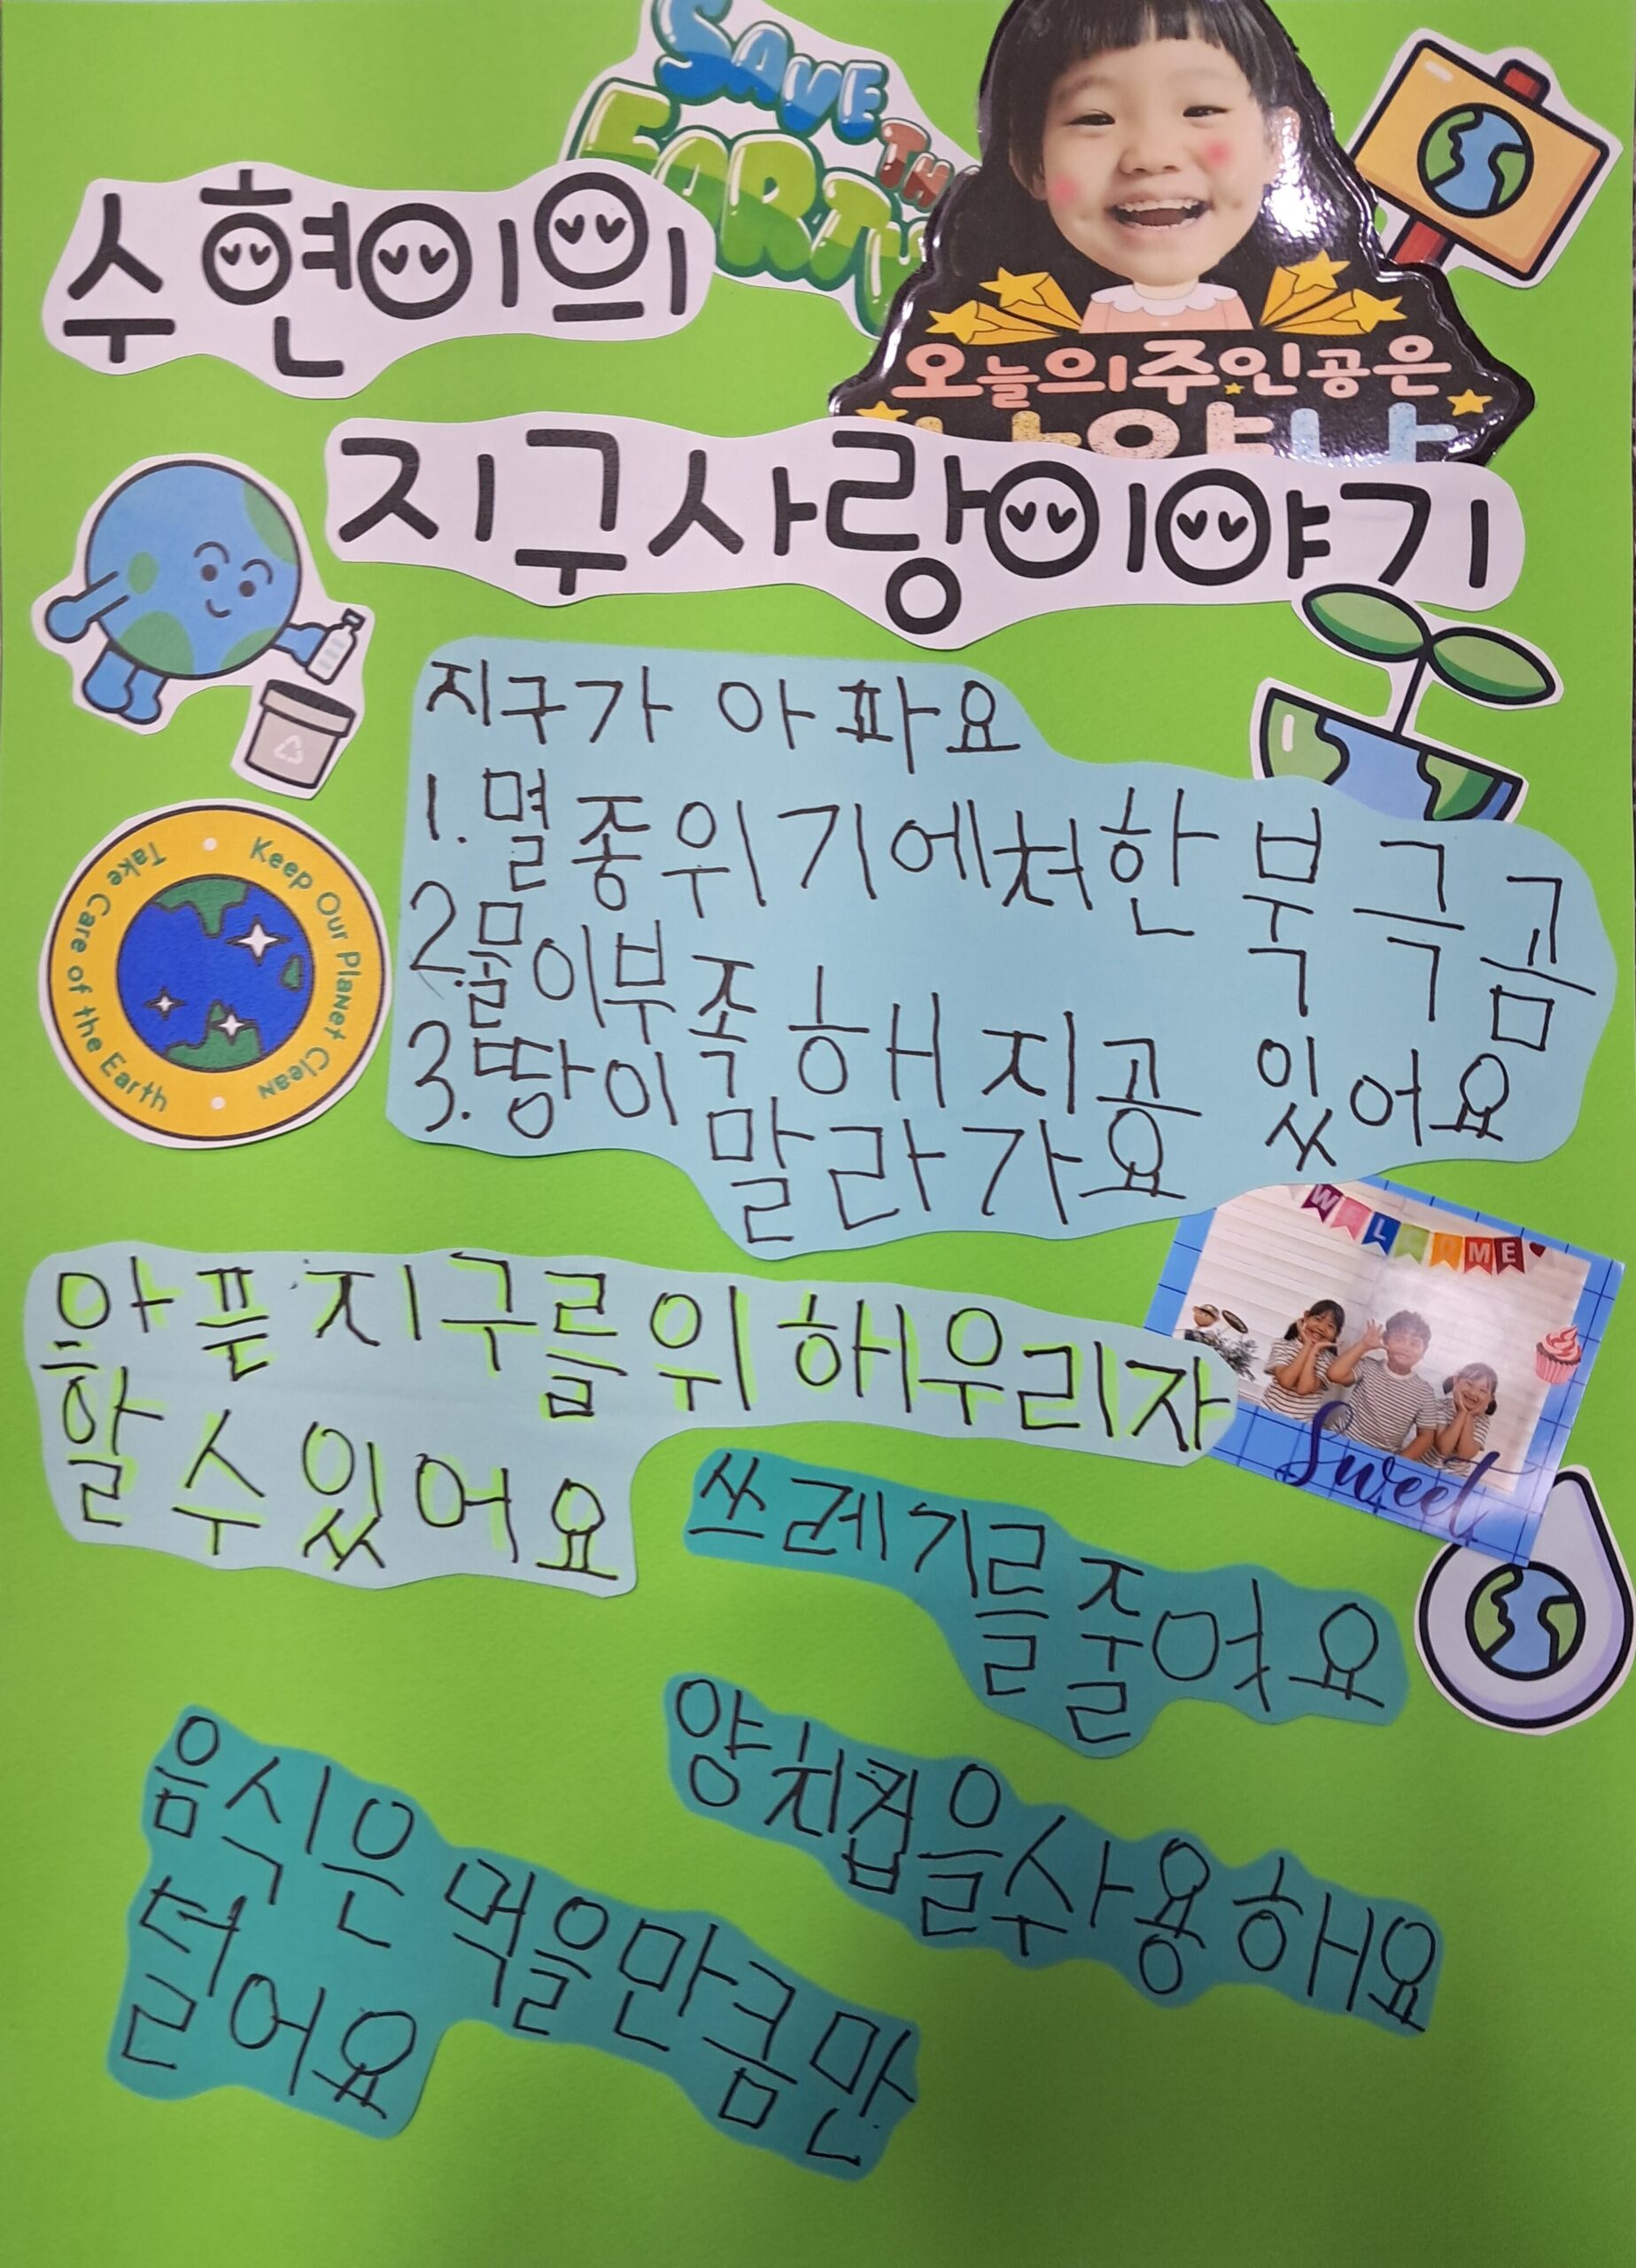 SAVE THE
EARTH
수현이의
오늘의 주인공은
지구사랑이야기
지구가 아파요
1. 멸종위기에쳐한 북극곰
2. 물이부족해지고 있어요
3. 땅이 말라가요
Keep Our Planet Clean
Take Care of the Earth
WELCOME
Sweet
아픈지구를위해우리자
할수있어요
쓰레기를줄여요
양치컵을사용해요
음식은먹을만큼만
덜어요